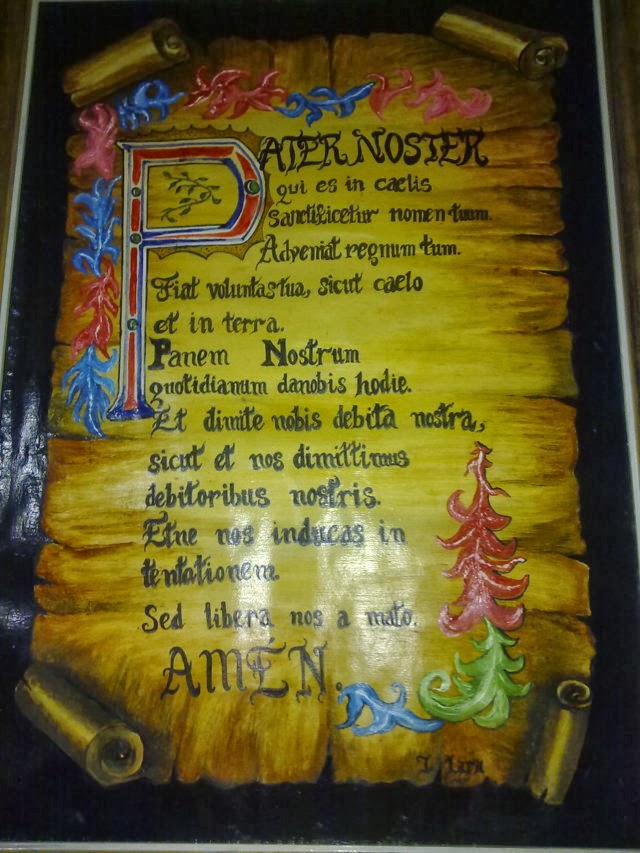 PATER NOSTER
qui es in caelis
sanctificetur nomen tuum.
Adveniat regnum tum.
Fiat voluntastua, sicut caelo
et in terra.
Panem Nostrum
quotidianum danobis hodie.
Et dimite nobis debita nostra,
sicut et nos dimittimus
debitoribus nostris.
Etne nos inducas in
tentationem.
Sed libera nos a malo.
AMÉN.